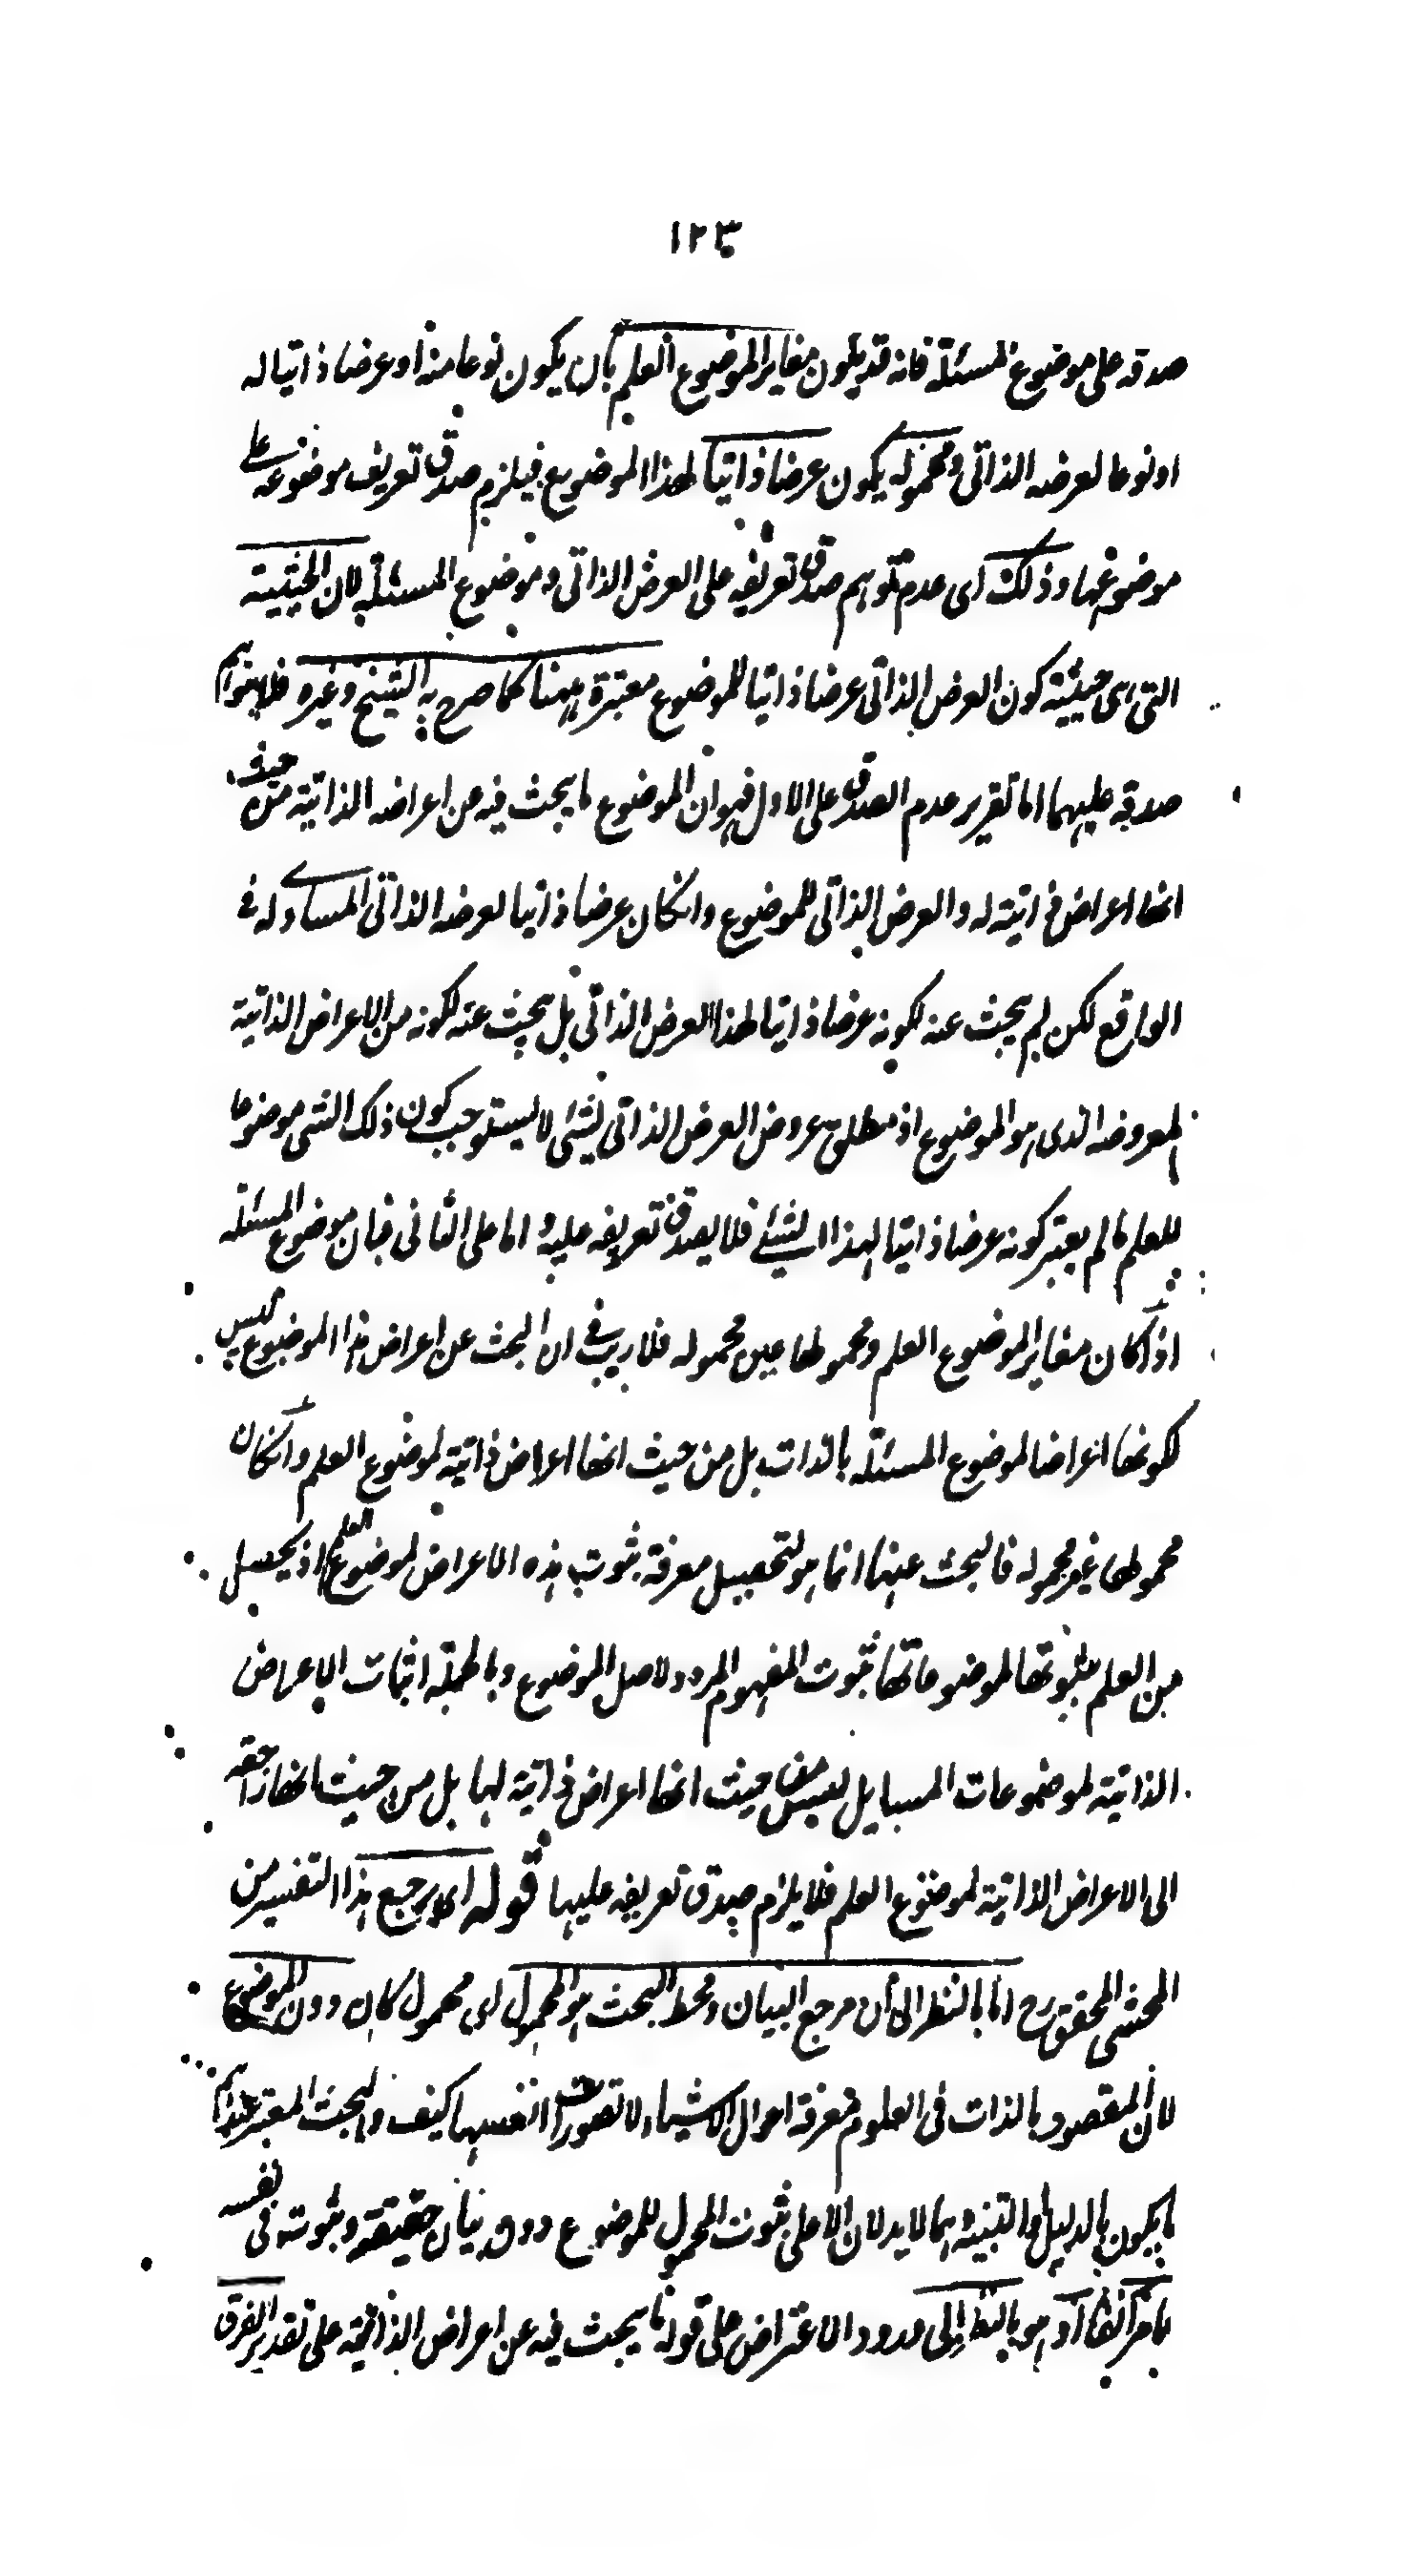 ١٢٣
صدقه على موضوع المسئلة فانه قد يكون مغاير الموضوع العلم بان يكون نوعا منه او عرضا ذاتيا له
او نوعا لعرضه الذاتى ومحموله يكون عرضا ذاتيا لهذا الموضوع فيلزم صدق تعريف موضوعه على
موضوعها وذلك اى عدم توهم صدق تعريفه على العرض الذاتى وموضوع المسئلة لان الحيثية
التى هى حيثية كون العرض الذاتى عرضا ذاتيا للموضوع معتبرة ههنا كما صرح به الشيخ وغيره فلا يتوهم
صدقه عليهما اما تقرير عدم الصدق على الاول فهو ان الموضوع ما يبحث فيه عن اعراضه الذاتية من حيث
انها اعراض ذاتية له والعرض الذاتى للموضوع وانكان عرضا ذاتيا لعرضه الذاتى المساوى له فى
الواقع لكن لم يبحث عنه لكونه عرضا ذاتيا لهذا العرض الذاتى بل يبحث عنه لكونه من الاعراض الذاتية
لمعروضه الذى هو الموضوع اذ مطلق عروض العرض الذاتى لشئ لا يستوجب كون ذلك الشى موضوعا
للعلم ما لم يعتبر كونه عرضا ذاتيا لهذا الشيئ فلا يصدق تعريفه عليه واما على الثانى فبان موضوع المسئلة
اذا كان مغاير الموضوع العلم ومحمولها عين محموله فلا ريب فى ان البحث عن اعراض هذا الموضوع ليس
لكونها اعراضا لموضوع المسئلة بالذات بل من حيث انها اعراض ذاتية لموضوع العلم وانكان
محمولها غير محموله فالبحث عنها انما هو لتحصيل معرفة ثبوت هذه الاعراض لموضوع العلم اذ يحصل
من العلم بثبوتها لموضوعاتها ثبوت المفهوم المردد لاصل الموضوع وبالجملة اثبات الاعراض
الذاتية لموضوعات المسايل ليس من حيث انها اعراض ذاتية لها بل من حيث انها راجعة
الى الاعراض الذاتية لموضوع العلم فلا يلزم صدق تعريفه عليها قوله اى يرجع هذا التفسير من
المحشى المحقق رح اما بالنظر الى ان مرجع البيان ومحط البحث هو المحمول اى محمول كان دون الموضوع
لان المقصود بالذات فى العلوم معرفة احوال الاشياء لا تصورات انفسها كيف والبحث المعتبر عندهم
ما يكون بالدليل والتنبيه وهما لا يدلان الا على ثبوت المحمول للموضوع دون بيان حقيقته وثبوته فى نفسه
ما مر آنفا او هو بالنظر الى ورود الاعتراض على قوله ما يبحث فيه عن اعراض الذاتية على تقدير الفرق